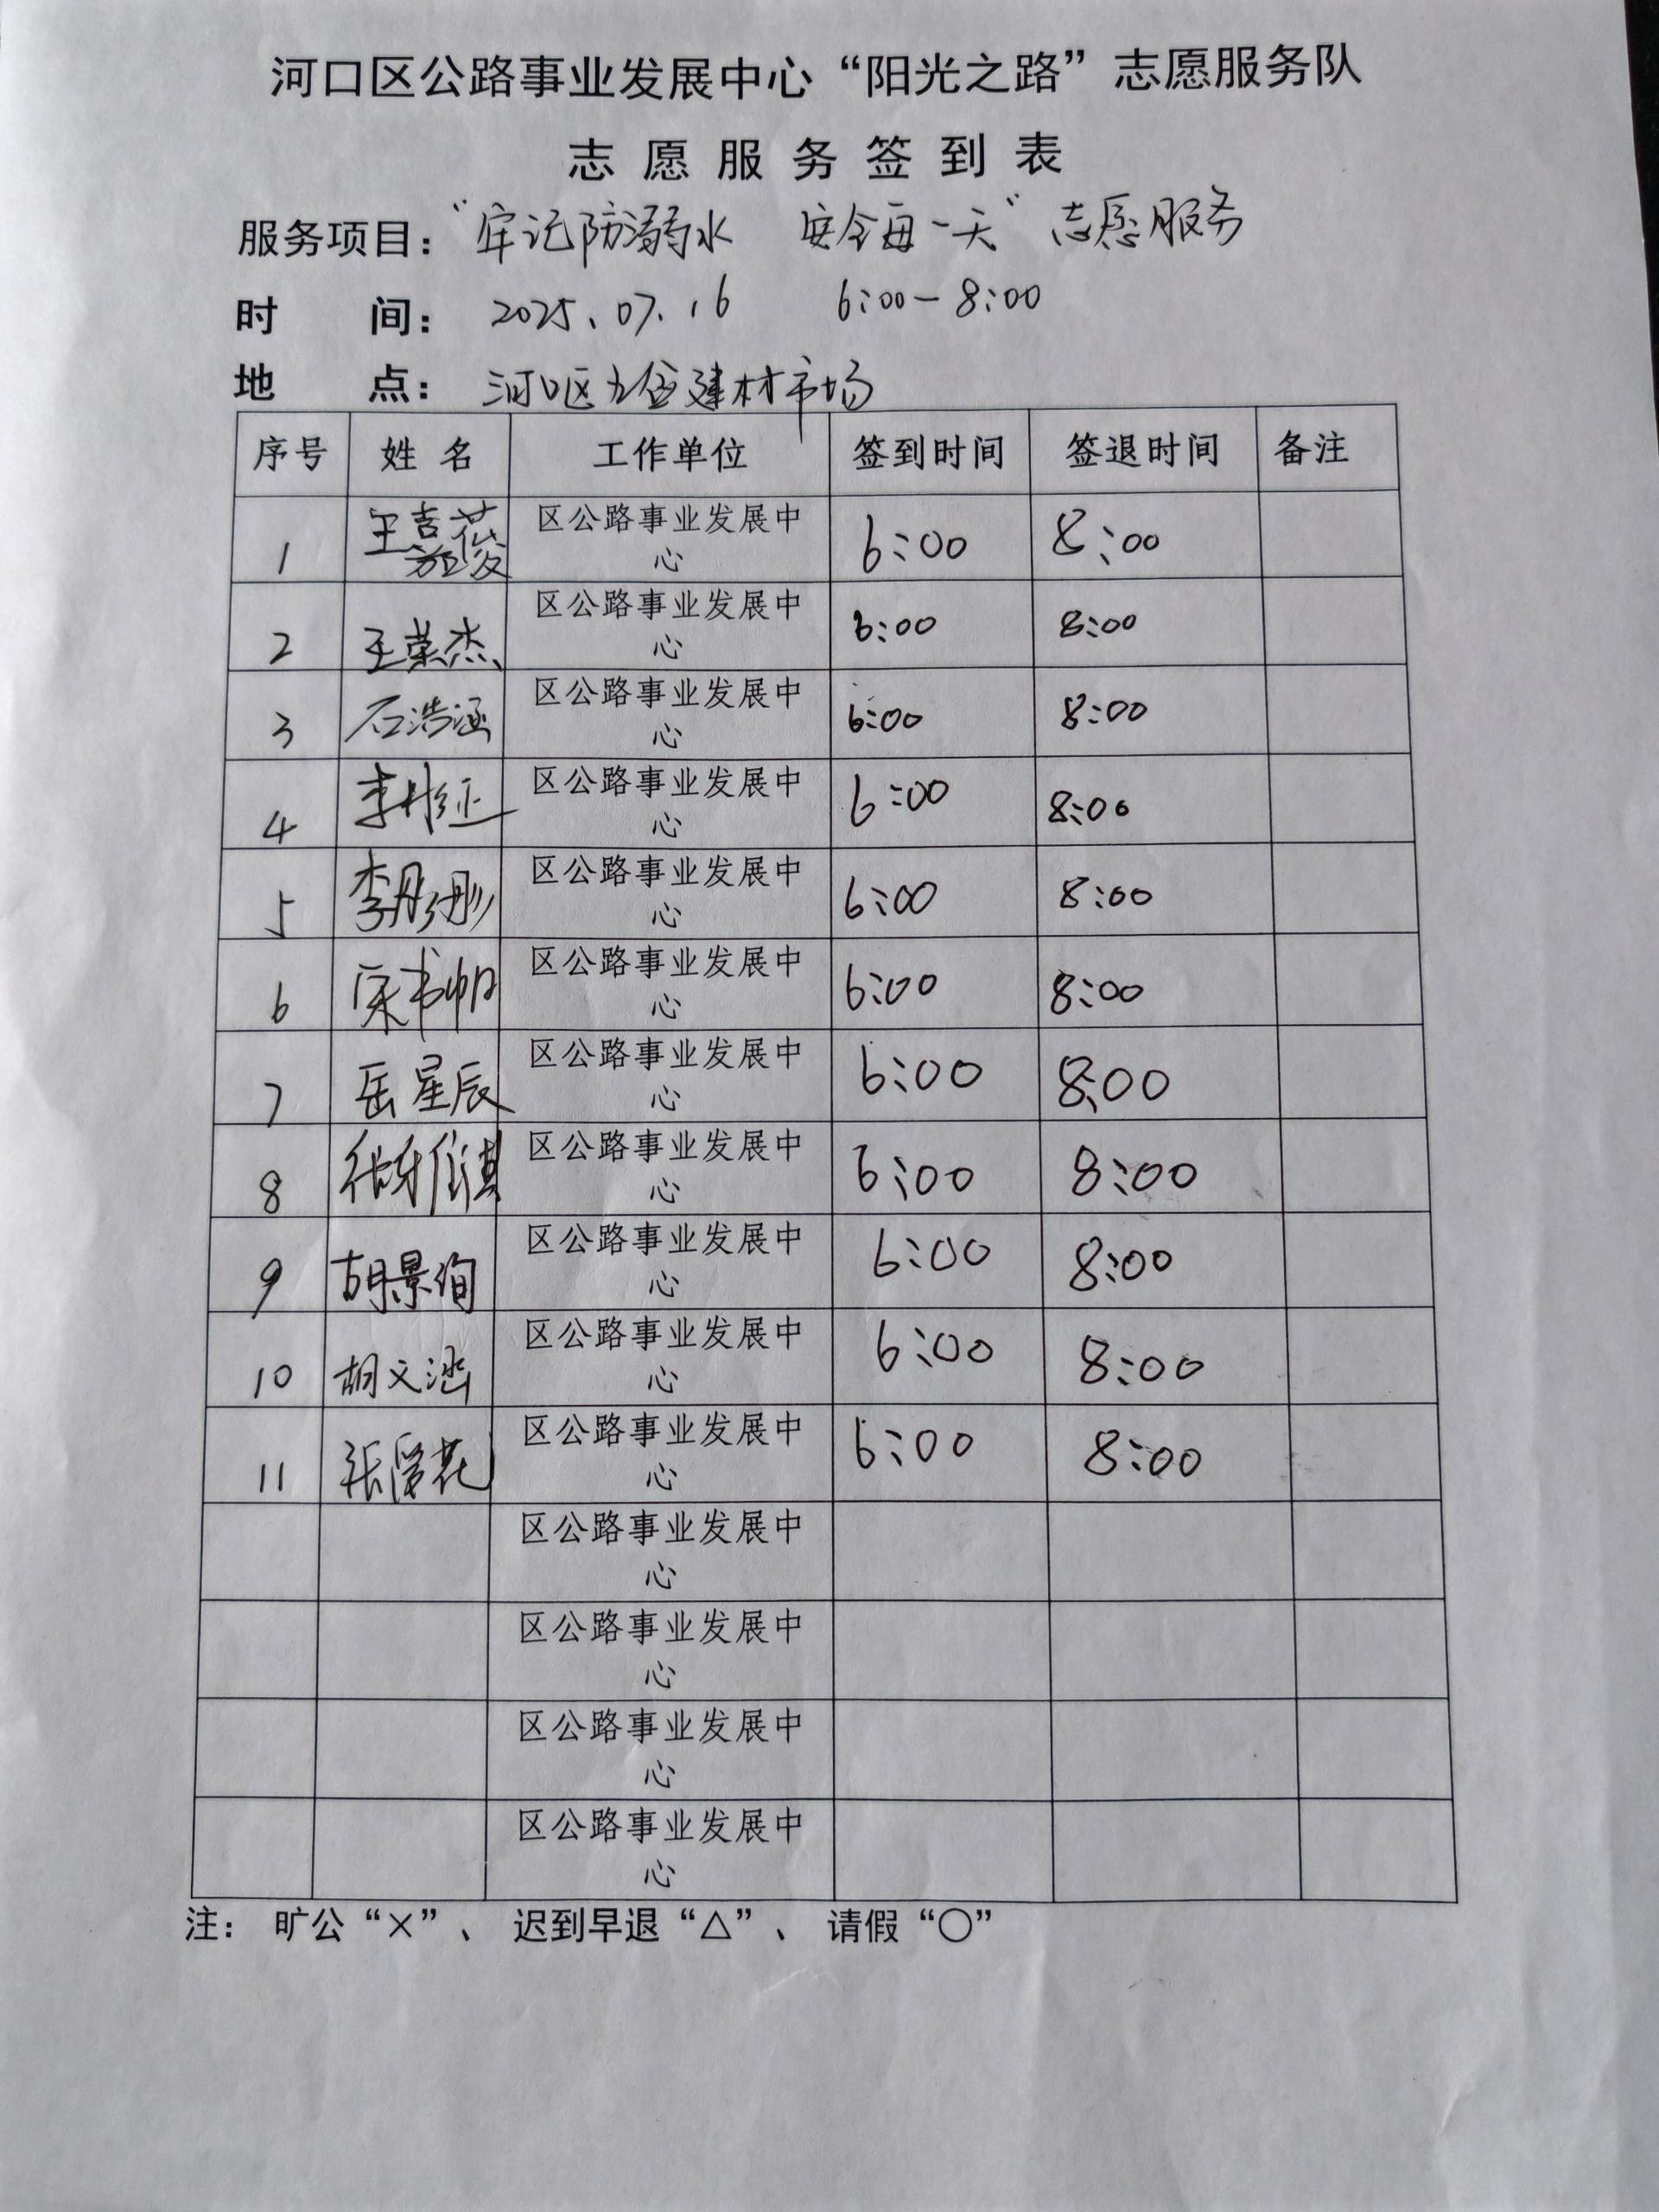 河口区公路事业发展中心“阳光之路”志愿服务队
志愿服务签到表
服务项目：“牢记防溺水 安全每一天”志愿服务
时 间：2025.07.16 6:00-8:00
地 点：河口区五金建材市场
序号 姓名 工作单位 签到时间 签退时间 备注
1 区公路事业发展中心 6:00 8:00
2 王荣杰 区公路事业发展中心 6:00 8:00
3 石浩涵 区公路事业发展中心 6:00 8:00
4 区公路事业发展中心 6:00 8:00
5 区公路事业发展中心 6:00 8:00
6 宋书帆 区公路事业发展中心 6:00 8:00
7 岳星辰 区公路事业发展中心 6:00 8:00
8 区公路事业发展中心 6:00 8:00
9 胡景询 区公路事业发展中心 6:00 8:00
10 胡文涵 区公路事业发展中心 6:00 8:00
11 区公路事业发展中心 6:00 8:00
区公路事业发展中心
区公路事业发展中心
区公路事业发展中心
区公路事业发展中心
注： 旷公“×”、 迟到早退“△”、 请假“○”